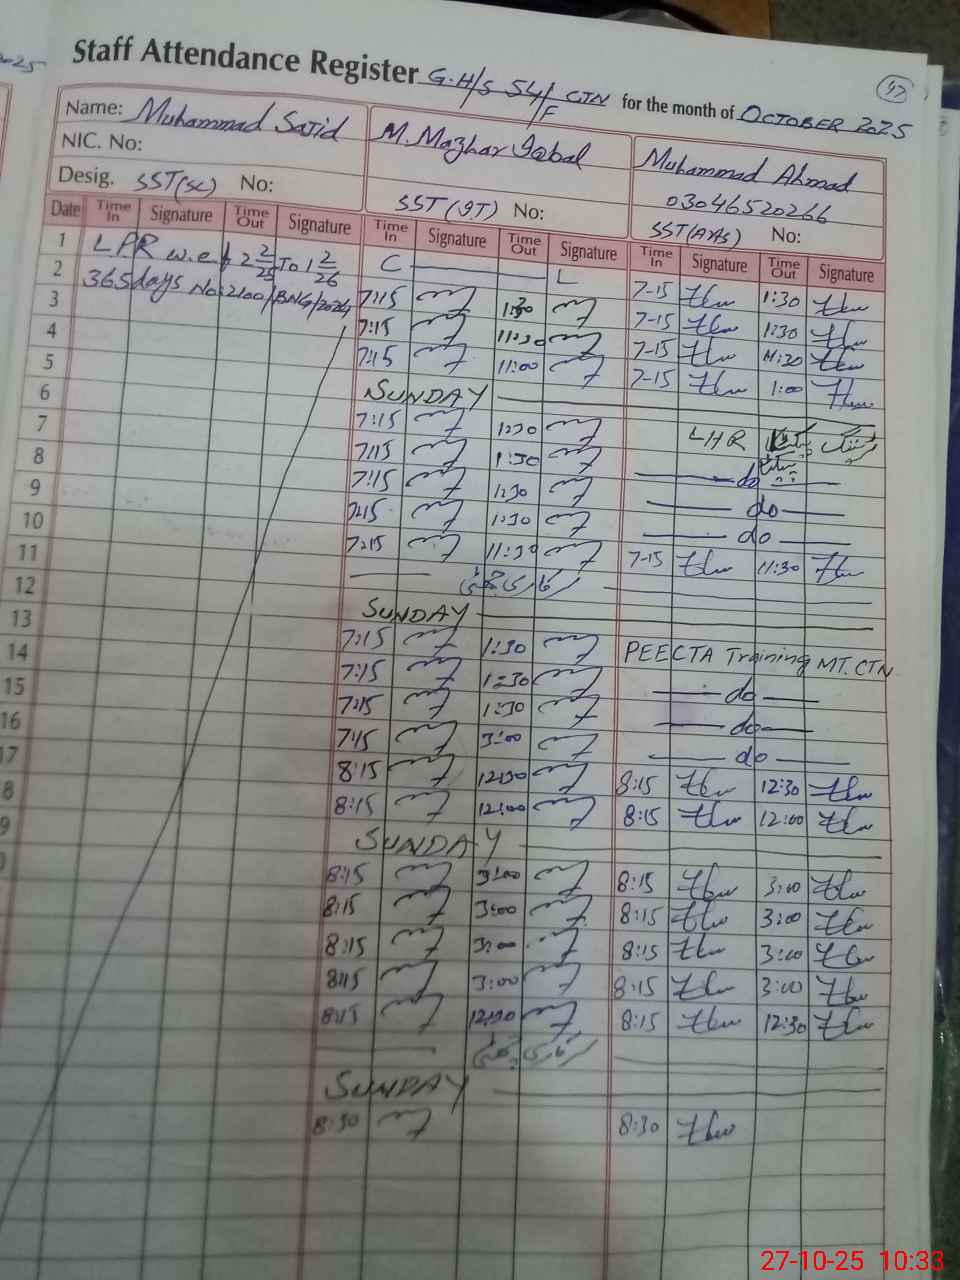 Staff Attendance Register G.H/S 54/F CTN for the month of OCTOBER 2025
92
Name: Muhammad Sajid M. Mazhar Iqbal Muhammad Ahmad
NIC. No: 03046520266
Desig. SST(SC) No: SST(IT) No: SST(Arts) No:
Date Time In Signature Time Out Signature Time In Signature Time Out Signature Time In Signature Time Out Signature
1 LPR w.e.f 2 2/25 To 1 2/26 C L 7-15 1:30
2 365 days No: 2100/BNG/2024 7:15 1:30 7-15 1:30
3 7:15 11:30 7-15 11:30
4 7:15 11:00 7-15 1:00
5 SUNDAY
6 7:15 1:30 LHR
7 7:15 1:30 do
8 7:15 1:30 do
9 7:15 1:30 do
10 7:15 11:30 7-15 11:30
11
12 SUNDAY
13 7:15 1:30 PEECTA Training MT. CTN
14 7:15 1:30 do
15 7:15 1:30 do
16 7:15 3:00 do
17 8:15 12:30 8:15 12:30
8 8:15 12:00 8:15 12:00
9 SUNDAY
8:15 3:00 8:15 3:00
8:15 3:00 8:15 3:00
8:15 3:00 8:15 3:00
8:15 3:00 8:15 3:00
8:15 12:30 8:15 12:30
SUNDAY
8:30 8:30
27-10-25 10:33